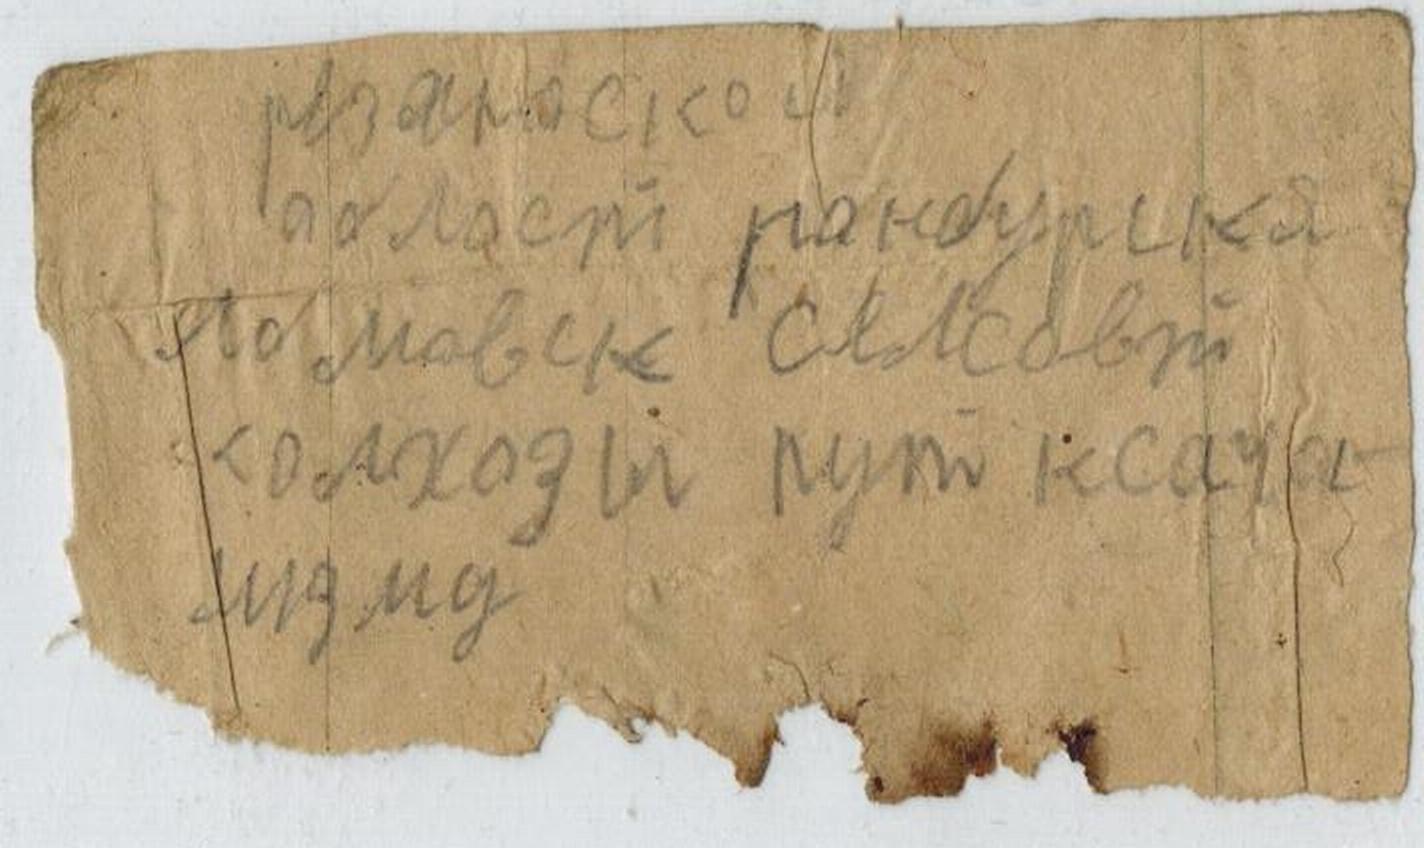 рязаноской
област ранбурска
Ломавск селсовт
колхозы пут ксача